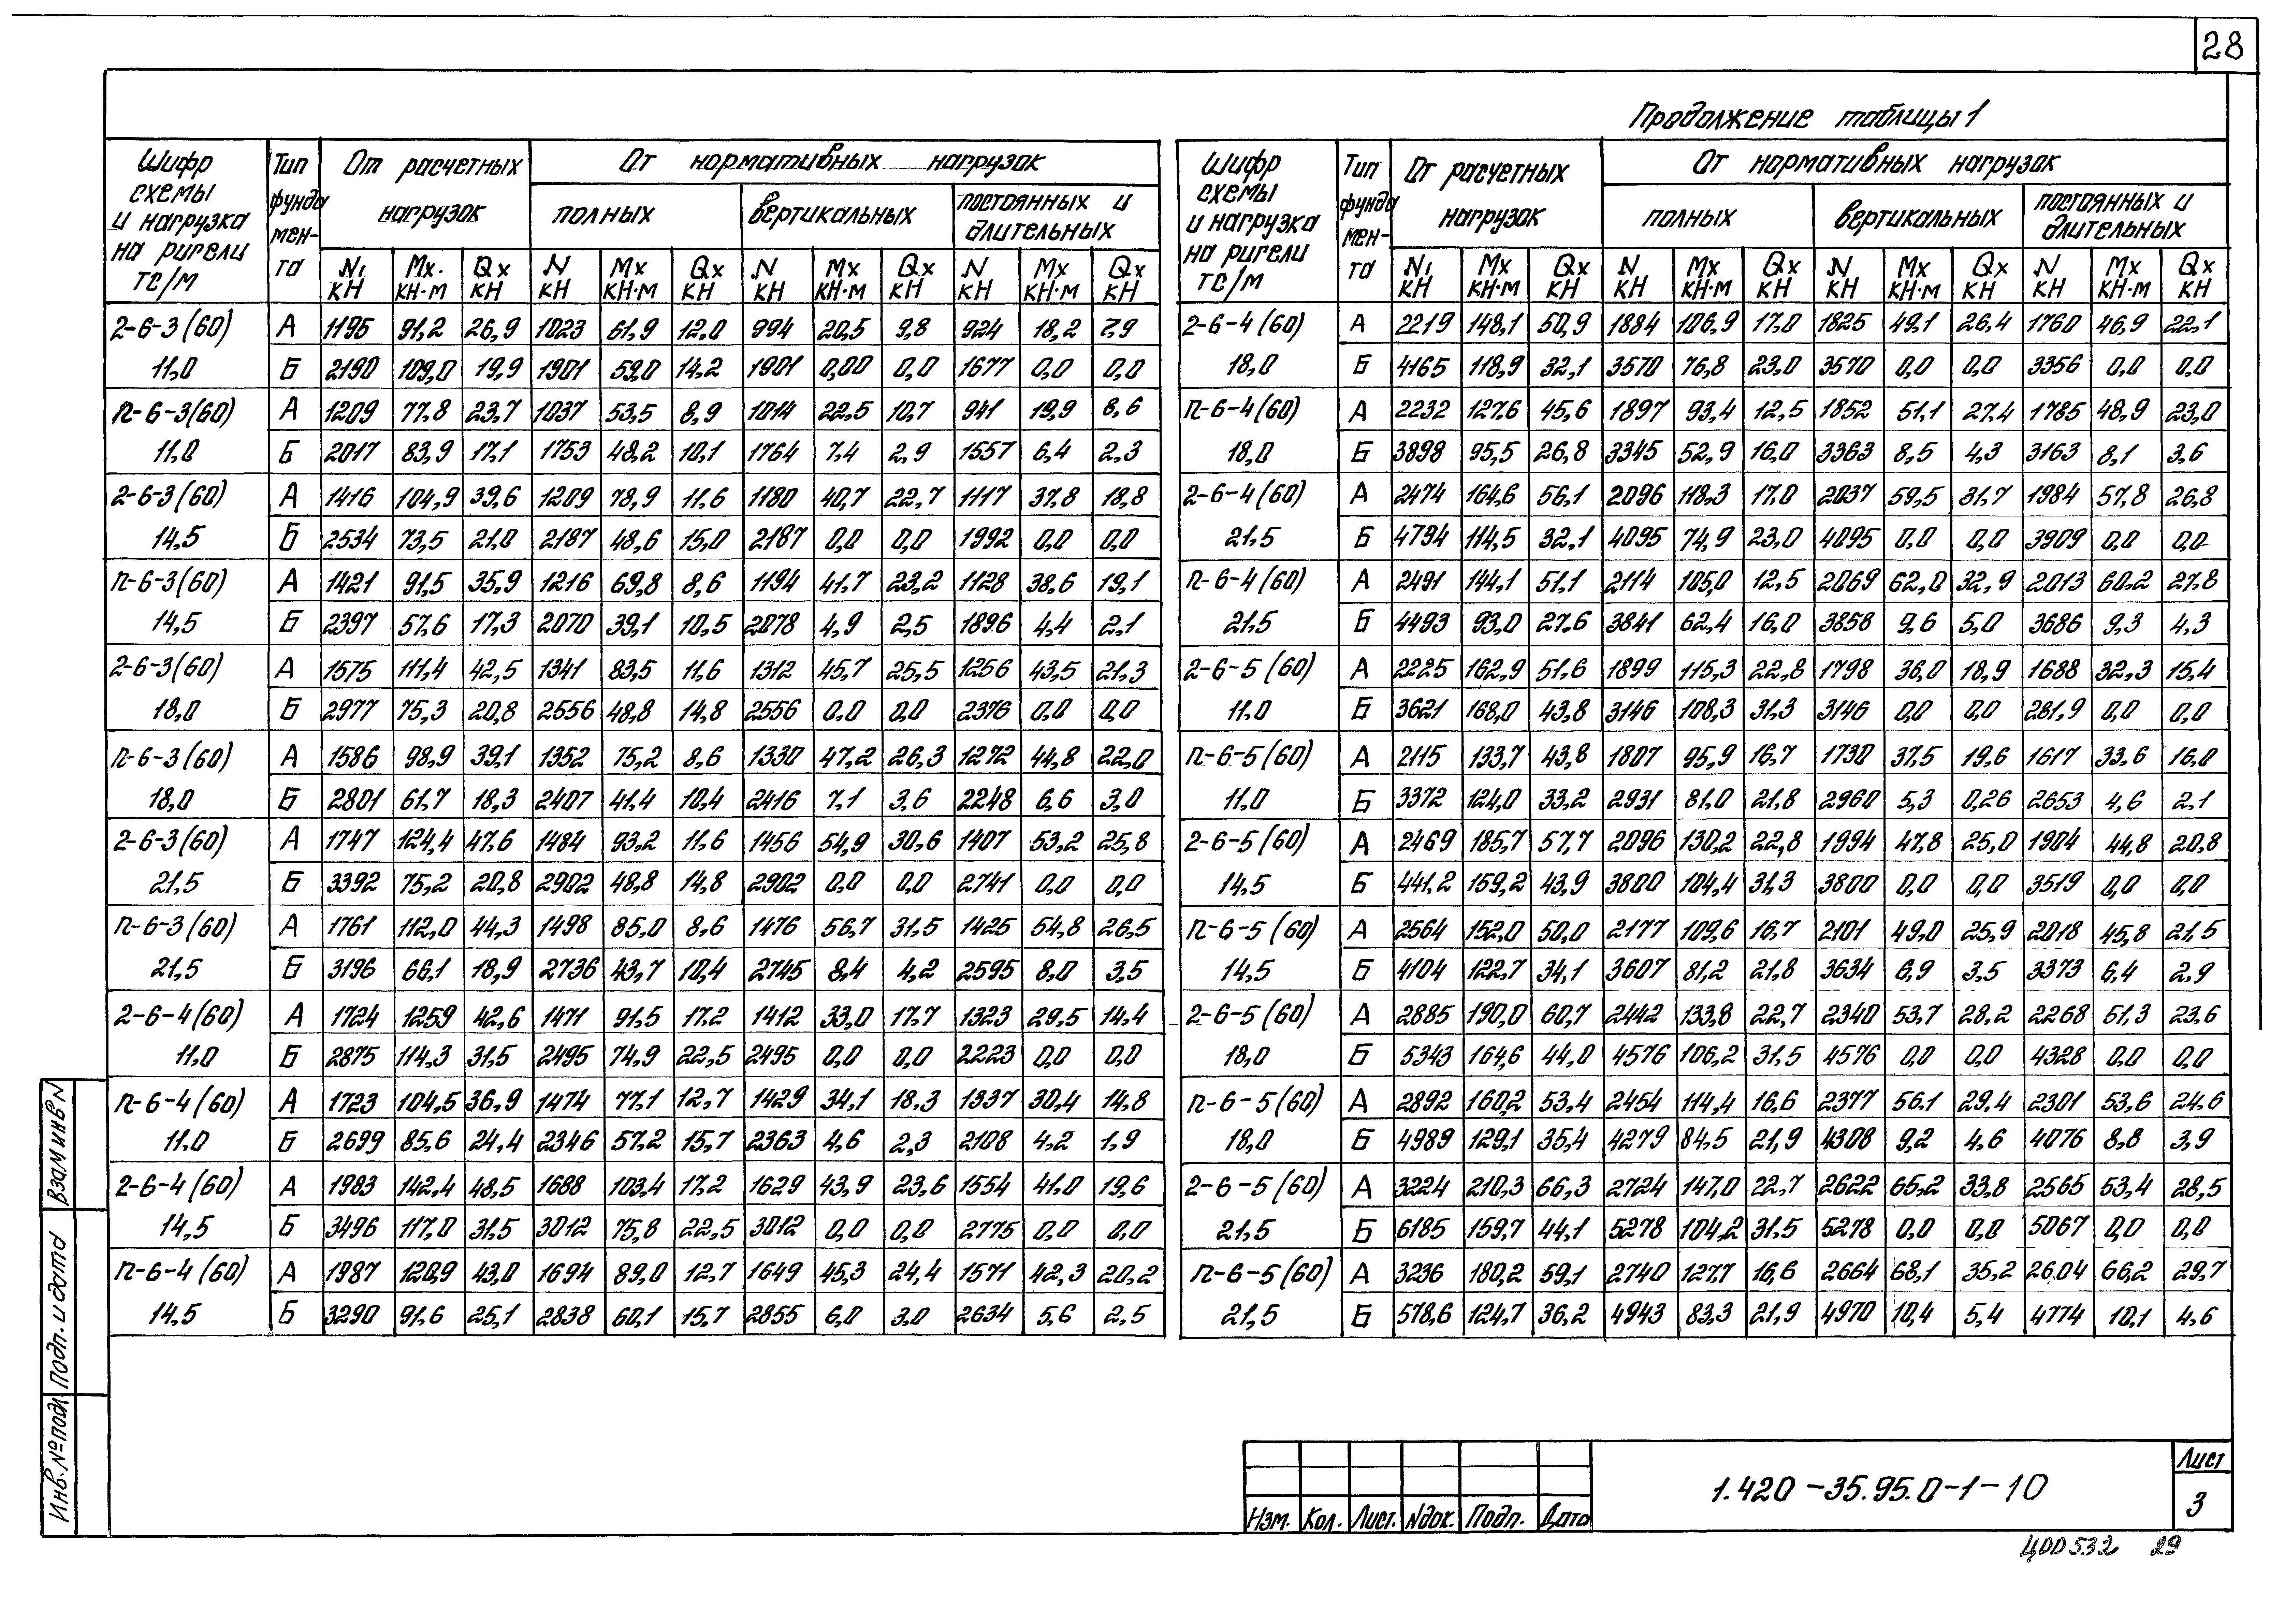 28
Продолжение таблицы 1
Шифр схемы и нагрузка на ригели тс/м | Тип фундамента | От расчетных нагрузок | От нормативных нагрузок
полных | вертикальных | постоянных и длительных
N, кН | Mx. кН·м | Qx кН | N кН | Mx кН·м | Qx кН | N кН | Mx кН·м | Qx кН | N кН | Mx кН·м | Qx кН
2-6-3(60) А 1195 91,2 26,9 1023 61,9 12,0 994 20,5 9,8 924 18,2 7,9
11,0 Б 2190 109,0 19,9 1901 59,0 14,2 1901 0,00 0,0 1677 0,0 0,0
п-6-3(60) А 1209 77,8 23,7 1037 53,5 8,9 1014 22,5 10,7 941 19,9 8,6
11,0 Б 2017 83,9 17,1 1753 48,2 10,1 1764 7,4 2,9 1557 6,4 2,3
2-6-3(60) А 1416 104,9 39,6 1209 78,9 11,6 1180 40,7 22,7 1117 37,8 18,8
14,5 Б 2534 73,5 21,0 2187 48,6 15,0 2187 0,0 0,0 1992 0,0 0,0
п-6-3(60) А 1421 91,5 35,9 1216 69,8 8,6 1194 41,7 23,2 1128 38,6 19,1
14,5 Б 2397 57,6 17,3 2070 39,1 10,5 2078 4,9 2,5 1896 4,4 2,1
2-6-3(60) А 1575 111,4 42,5 1341 83,5 11,6 1312 45,7 25,5 1256 43,5 21,3
18,0 Б 2977 75,3 20,8 2556 48,8 14,8 2556 0,0 0,0 2376 0,0 0,0
п-6-3(60) А 1586 98,9 39,1 1352 75,2 8,6 1330 47,2 26,3 1272 44,8 22,0
18,0 Б 2801 61,7 18,3 2407 41,4 10,4 2416 7,1 3,6 2248 6,6 3,0
2-6-3(60) А 1747 124,4 47,6 1484 93,2 11,6 1456 54,9 30,6 1407 53,2 25,8
21,5 Б 3392 75,2 20,8 2902 48,8 14,8 2902 0,0 0,0 2741 0,0 0,0
п-6-3(60) А 1761 112,0 44,3 1498 85,0 8,6 1476 56,7 31,5 1425 54,8 26,5
21,5 Б 3196 66,1 18,9 2736 43,7 10,4 2745 8,4 4,2 2595 8,0 3,5
2-6-4(60) А 1724 1259 42,6 1471 91,5 17,2 1412 33,0 17,7 1323 29,5 14,4
11,0 Б 2875 114,3 31,5 2495 74,9 22,5 2495 0,0 0,0 2223 0,0 0,0
п-6-4(60) А 1723 104,5 36,9 1474 77,1 12,7 1429 34,1 18,3 1337 30,4 14,8
11,0 Б 2699 85,6 24,4 2346 57,2 15,7 2363 4,6 2,3 2108 4,2 1,9
2-6-4(60) А 1983 142,4 48,5 1688 103,4 17,2 1629 43,9 23,6 1554 41,0 19,6
14,5 Б 3496 117,0 31,5 3012 75,8 22,5 3012 0,0 0,0 2775 0,0 0,0
п-6-4(60) А 1987 120,9 43,0 1694 89,0 12,7 1649 45,3 24,4 1571 42,3 20,2
14,5 Б 3290 91,6 25,1 2838 60,1 15,7 2855 6,0 3,0 2634 5,6 2,5
Шифр схемы и нагрузка на ригели тс/м | Тип фундамента | От расчетных нагрузок | От нормативных нагрузок
полных | вертикальных | постоянных и длительных
N, кН | Mx кН·м | Qx кН | N кН | Mx кН·м | Qx кН | N кН | Mx кН·м | Qx кН | N кН | Mx кН·м | Qx кН
2-6-4(60) А 2219 148,1 50,9 1884 106,9 17,0 1825 49,1 26,4 1760 46,9 22,1
18,0 Б 4165 118,9 32,1 3570 76,8 23,0 3570 0,0 0,0 3356 0,0 0,0
п-6-4(60) А 2232 127,6 45,6 1897 93,4 12,5 1852 51,1 27,4 1785 48,9 23,0
18,0 Б 3898 95,5 26,8 3345 52,9 16,0 3363 8,5 4,3 3163 8,1 3,6
2-6-4(60) А 2474 164,6 56,1 2096 118,3 17,0 2037 59,5 31,7 1984 57,8 26,8
21,5 Б 4794 114,5 32,1 4095 74,9 23,0 4095 0,0 0,0 3909 0,0 0,0
п-6-4(60) А 2491 144,1 51,1 2114 105,0 12,5 2069 62,0 32,9 2013 60,2 27,8
21,5 Б 4493 93,0 27,6 3841 62,4 16,0 3858 9,6 5,0 3686 9,3 4,3
2-6-5(60) А 2225 162,9 51,6 1899 115,3 22,8 1798 36,0 18,9 1688 32,3 15,4
11,0 Б 3621 168,0 43,8 3146 108,3 31,3 3146 0,0 0,0 281,9 0,0 0,0
п-6-5(60) А 2115 133,7 43,8 1807 95,9 16,7 1730 37,5 19,6 1617 33,6 16,0
11,0 Б 3372 124,0 33,2 2931 81,0 21,8 2960 5,3 0,26 2653 4,6 2,1
2-6-5(60) А 2469 185,7 57,7 2096 130,2 22,8 1994 47,8 25,0 1904 44,8 20,8
14,5 Б 441,2 159,2 43,9 3800 104,4 31,3 3800 0,0 0,0 3519 0,0 0,0
п-6-5(60) А 2564 152,0 50,0 2177 109,6 16,7 2101 49,0 25,9 2018 45,8 21,5
14,5 Б 4104 122,7 34,1 3607 81,2 21,8 3634 6,9 3,5 3373 6,4 2,9
2-6-5(60) А 2885 190,0 60,7 2442 133,8 22,7 2340 53,7 28,2 2268 51,3 23,6
18,0 Б 5343 164,6 44,0 4576 106,2 31,5 4576 0,0 0,0 4328 0,0 0,0
п-6-5(60) А 2892 160,2 53,4 2454 114,4 16,6 2377 56,1 29,4 2301 53,6 24,6
18,0 Б 4989 129,1 35,4 4279 84,5 21,9 4308 9,2 4,6 4076 8,8 3,9
2-6-5(60) А 3224 210,3 66,3 2724 147,0 22,7 2622 65,2 33,8 2565 53,4 28,5
21,5 Б 6185 159,7 44,1 5278 104,2 31,5 5278 0,0 0,0 5067 0,0 0,0
п-6-5(60) А 3236 180,2 59,1 2740 127,7 16,6 2664 68,1 35,2 2604 66,2 29,7
21,5 Б 578,6 124,7 36,2 4943 83,3 21,9 4970 10,4 5,4 4774 10,1 4,6
Инв.№подл Подп. и дата Взам инв N
Изм. Кол. Лист. Nдок. Подп. Дата
1.420-35.95.0-1-10
Лист
3
Ц00532 29